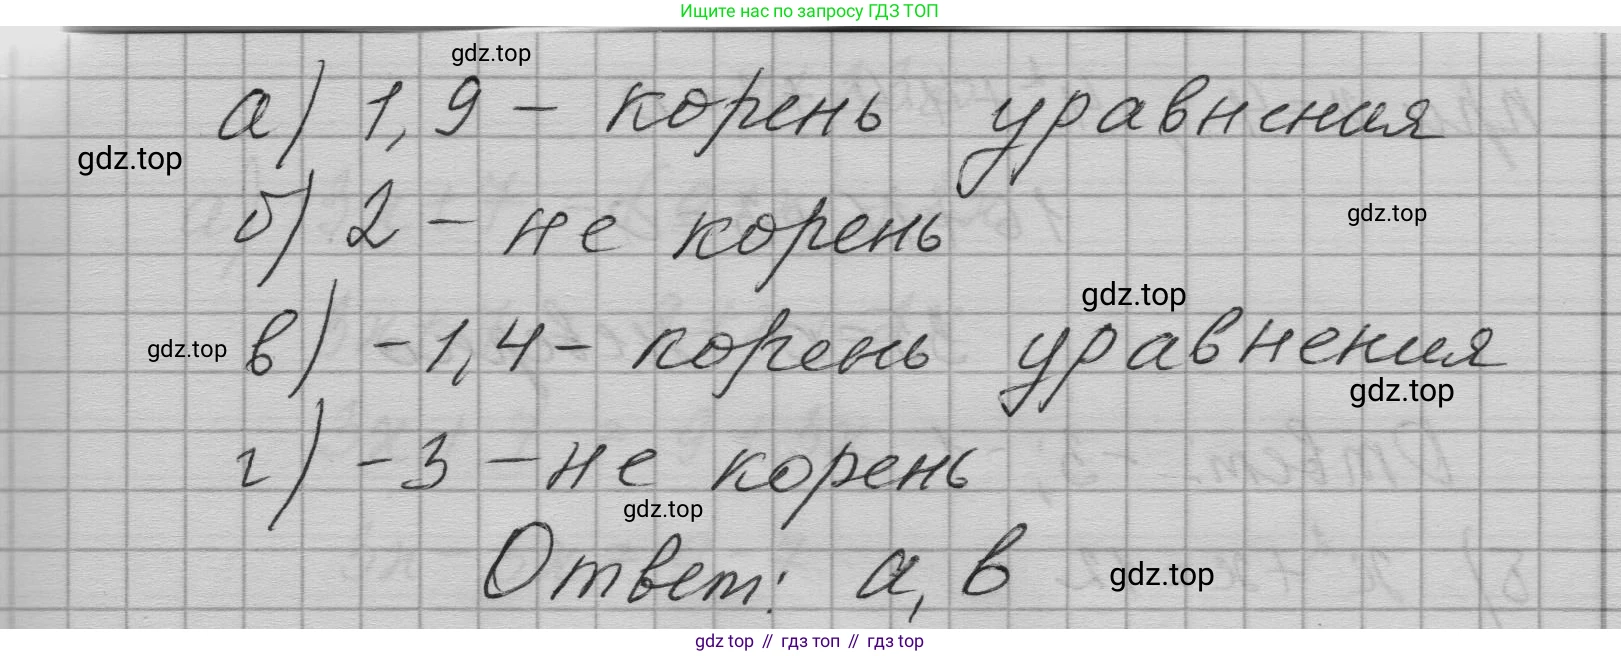 Ищите нас по запросу ГДЗ ТОП
gdz.top
а) 1,9 – корень уравнения
gdz.top
б) 2 – не корень
gdz.top
gdz.top
в) -1,4 – корень уравнения
gdz.top
gdz.top
г) -3 – не корень
gdz.top
Ответ: а, в
gdz.top
gdz top // гдз топ // гдз top